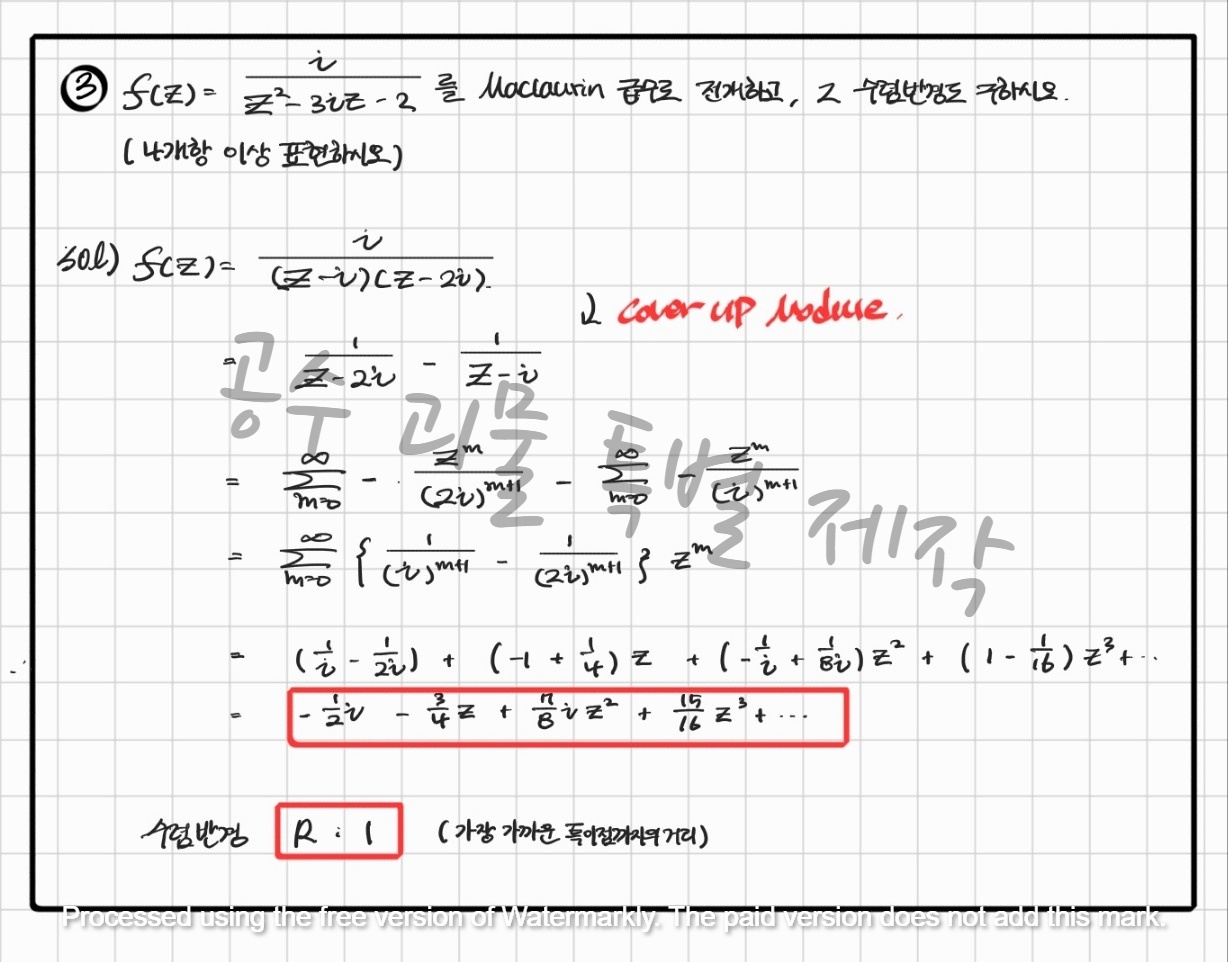 ③ f(z) = i / (z² - 3iz - 2) 를 Maclaurin 급수로 전개하고, 그 수렴반경도 구하시오.
(4개항 이상 표현하시오)
sol) f(z) = i / ((z-i)(z-2i)).
↓ cover-up
= 1/(z-2i) - 1/(z-i)
= ∑_{m=0}^{∞} - z^m/(2i)^{m+1} - ∑_{m=0}^{∞} - z^m/(i)^{m+1}
= ∑_{m=0}^{∞} { 1/(i)^{m+1} - 1/(2i)^{m+1} } z^m
= (1/i - 1/2i) + (-1 + 1/4) z + (-1/i + 1/8i) z² + (1 - 1/16) z³ + ···
= -1/2 i - 3/4 z + 7/8 i z² + 15/16 z³ + ···
수렴반경 R : 1 (가장 가까운 특이점까지의 거리)
공수 괴물 특별 제작
Processed using the free version of Watermarkly. The paid version does not add this mark.